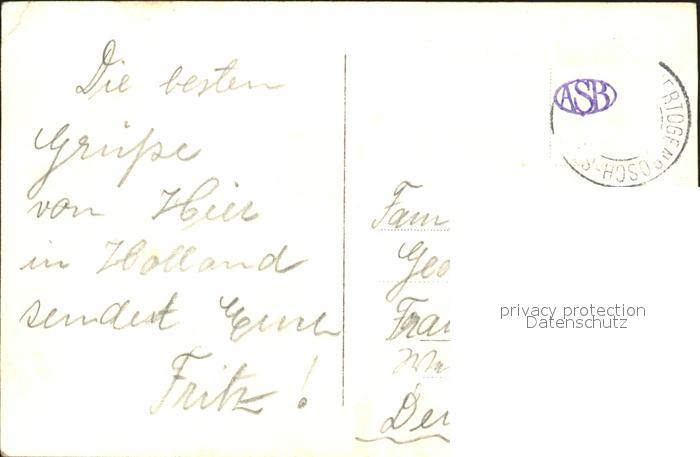 Die besten
Grüße
von Hier
in Holland
sendet Euch
Fritz!
ASB
ERTOGENBOSCH-S
Fam
Geo
Fra
De
privacy protection
Datenschutz